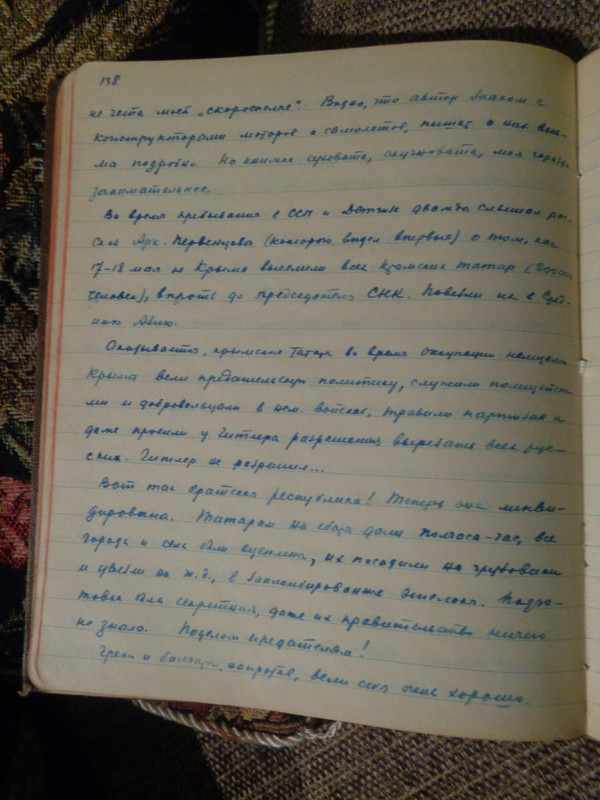 138
не чета моей „скороспелке". Видно, что автор знаком с
конструкторами моторов и самолетов, пишет о них весь-
ма подробно. Но книжка суховата, скучновата, моя
занимательнее.
Во время пребывания в ССП и Детгизе дважды слышал рас-
сказ Арк. Первенцева (которого видел впервые) о том, как
17-18 мая из Крыма выселили всех крымских татар (
человек), вплоть до председателя СНК. Повезли их в Сред-
нюю Азию.
Оказывается, крымские татары во время оккупации немцами
Крыма вели предательскую политику, служили полицейски-
ми и добровольцами в нем. войсках, травили партизан и
даже просили у Гитлера разрешения вырезать всех рус-
ских. Гитлер не разрешил...
Вот так братская республика! Теперь она ликви-
дирована. Татарам на сборы дали полчаса-час, все
города и села были оцеплены, их посадили на грузовики
и увезли на ж.д., в запломбированные эшелоны. Подго-
товка была секретная, даже их правительство ничего
не знало. Поделом предателям!
Греки и болгары, напротив, вели себя очень хорошо.